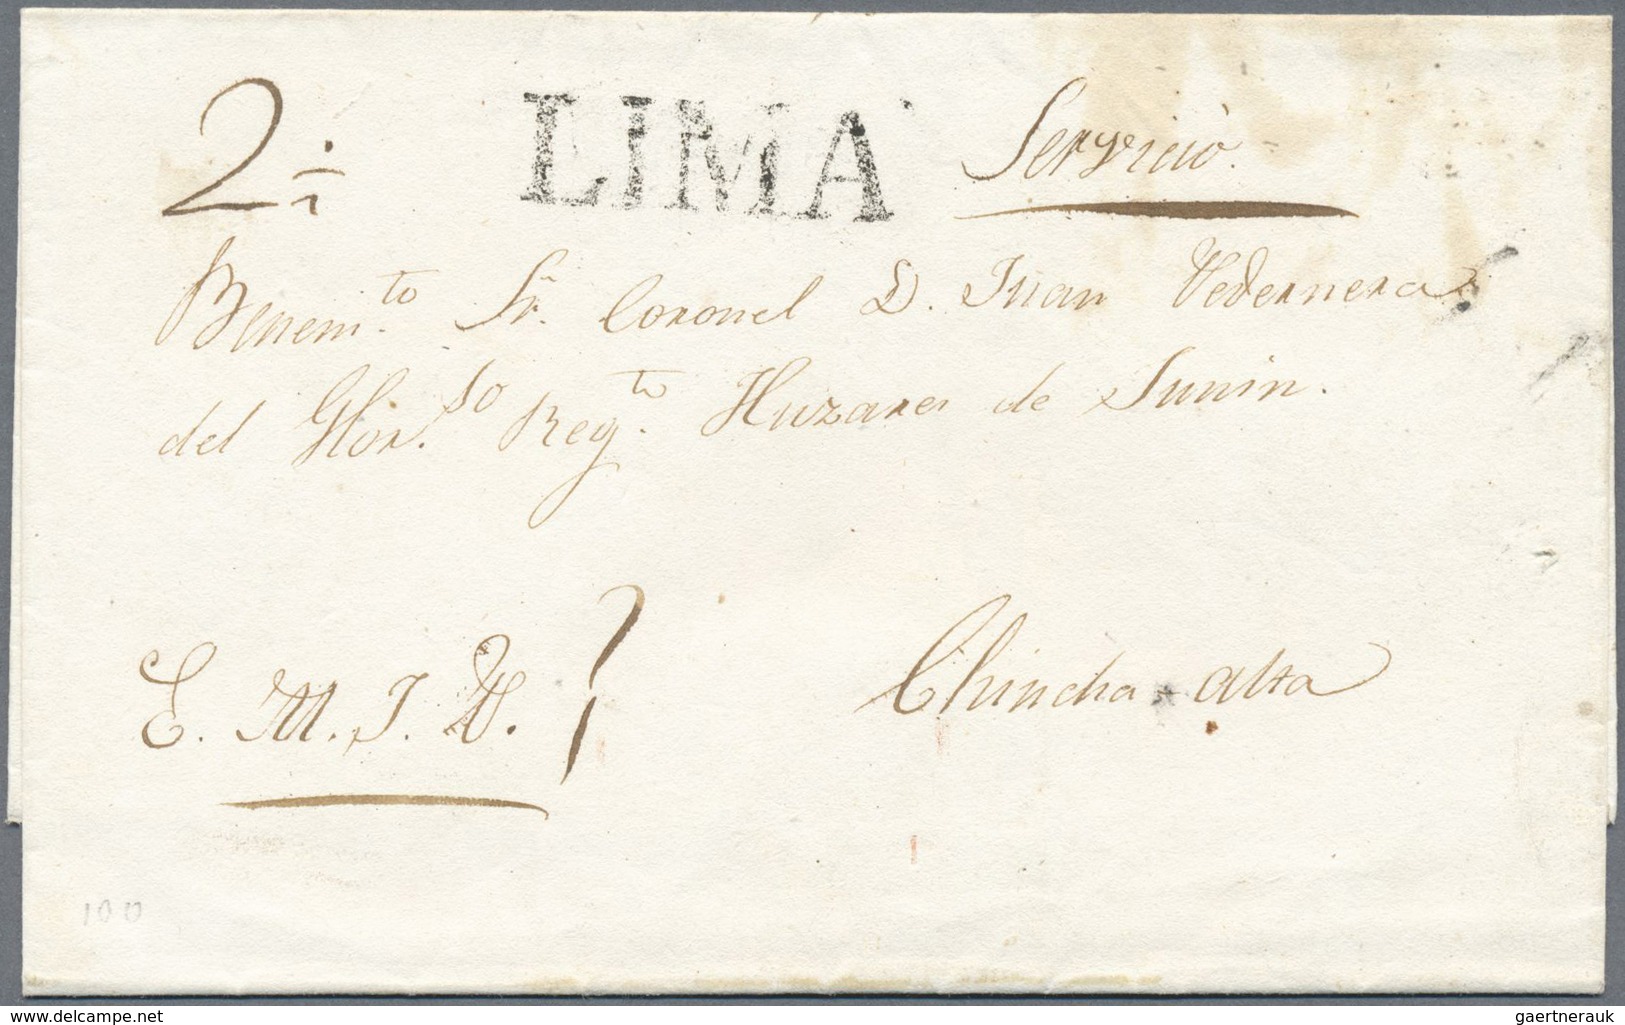 2 ÷ LIMA Servicio.
Benem.to Sr. Coronel D. Juan Pedernera
del Glor.so Reg.to Huzares de Junin.
E. M. J. D.
Chincha alta
100
www.delcampe.com
gaertnerauk